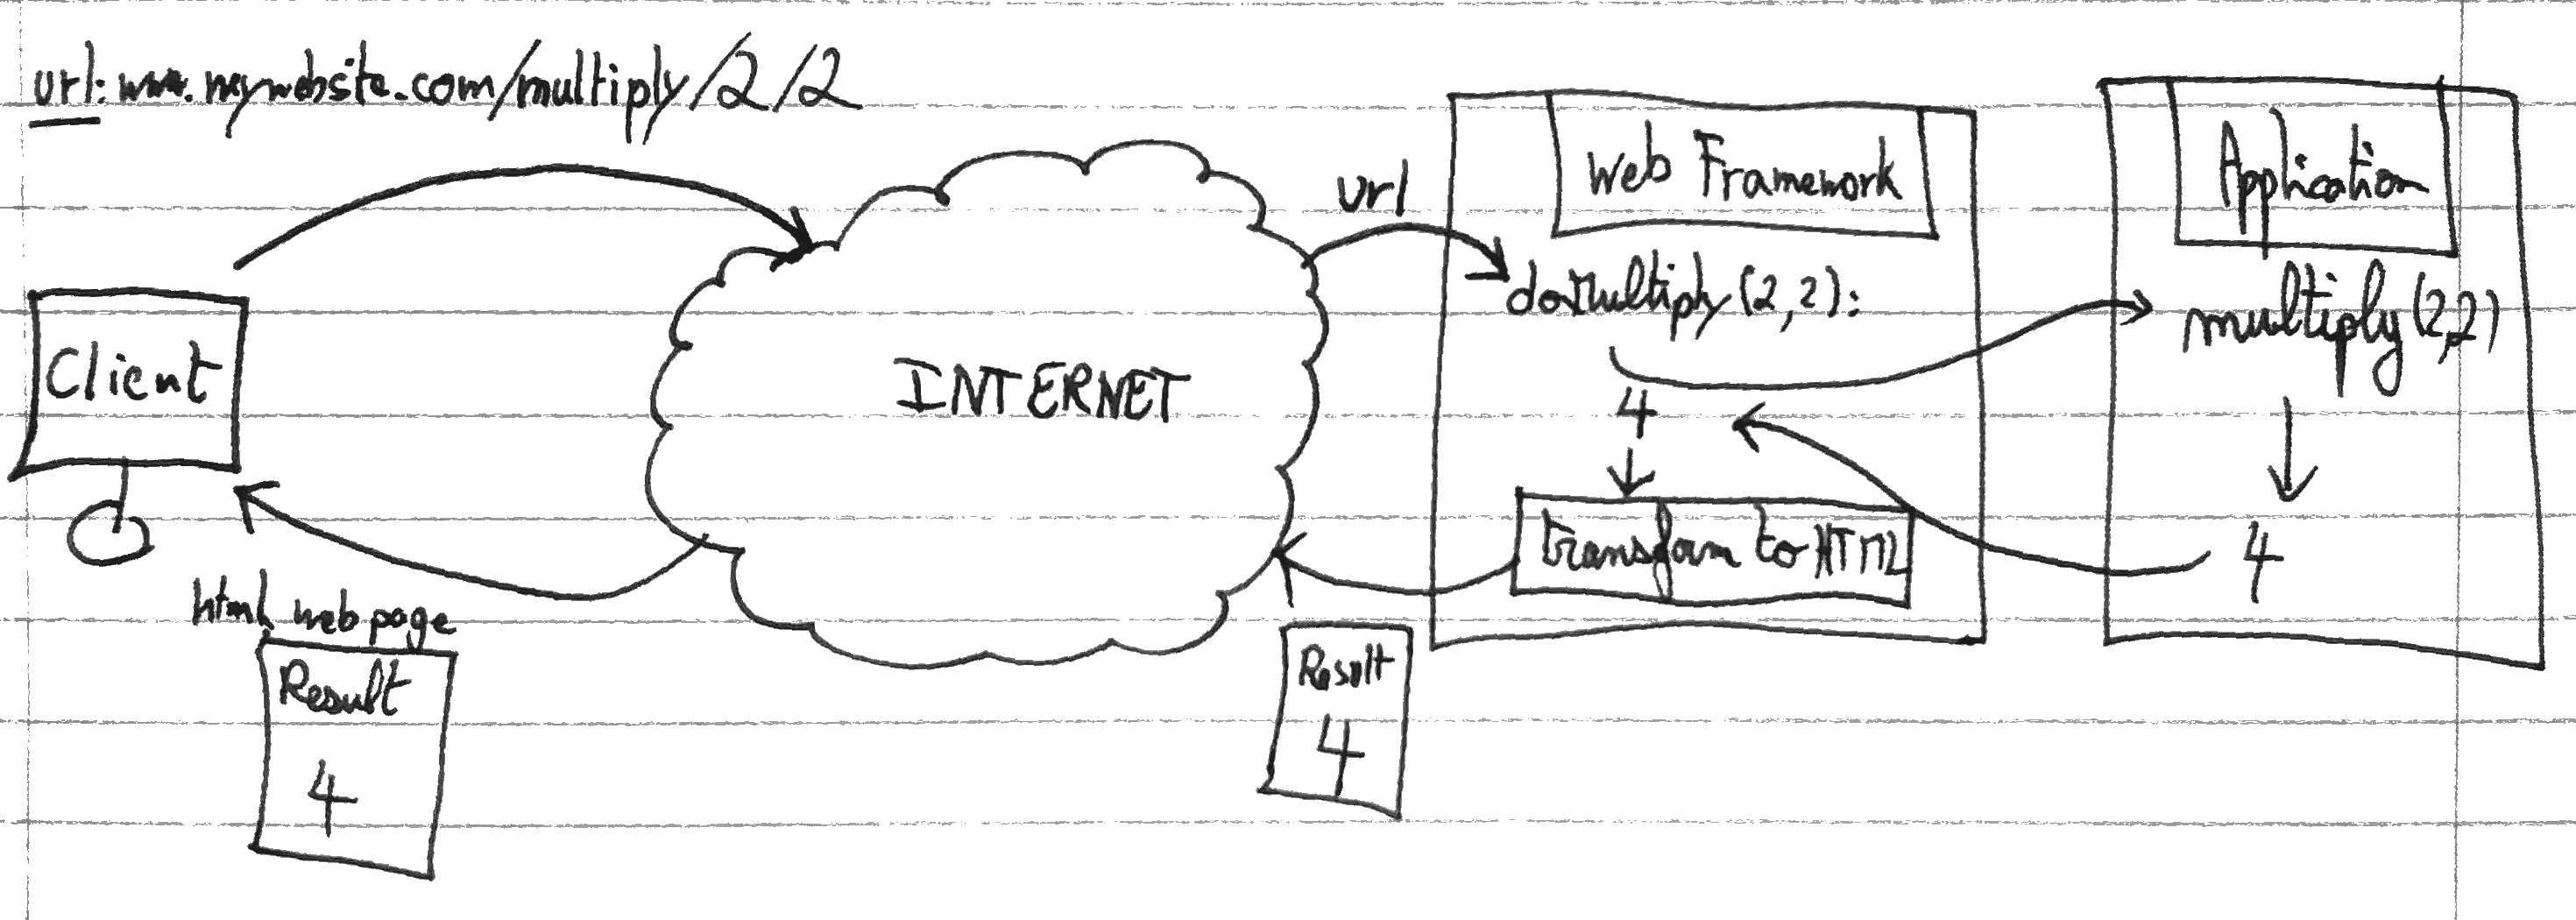 url: www.mywebsite.com/multiply/2/2
Client
INTERNET
url
Web Framework
doMultiply(2,2):
4
transform to HTML
Application
multiply(2,2)
4
Result
4
html web page
Result
4